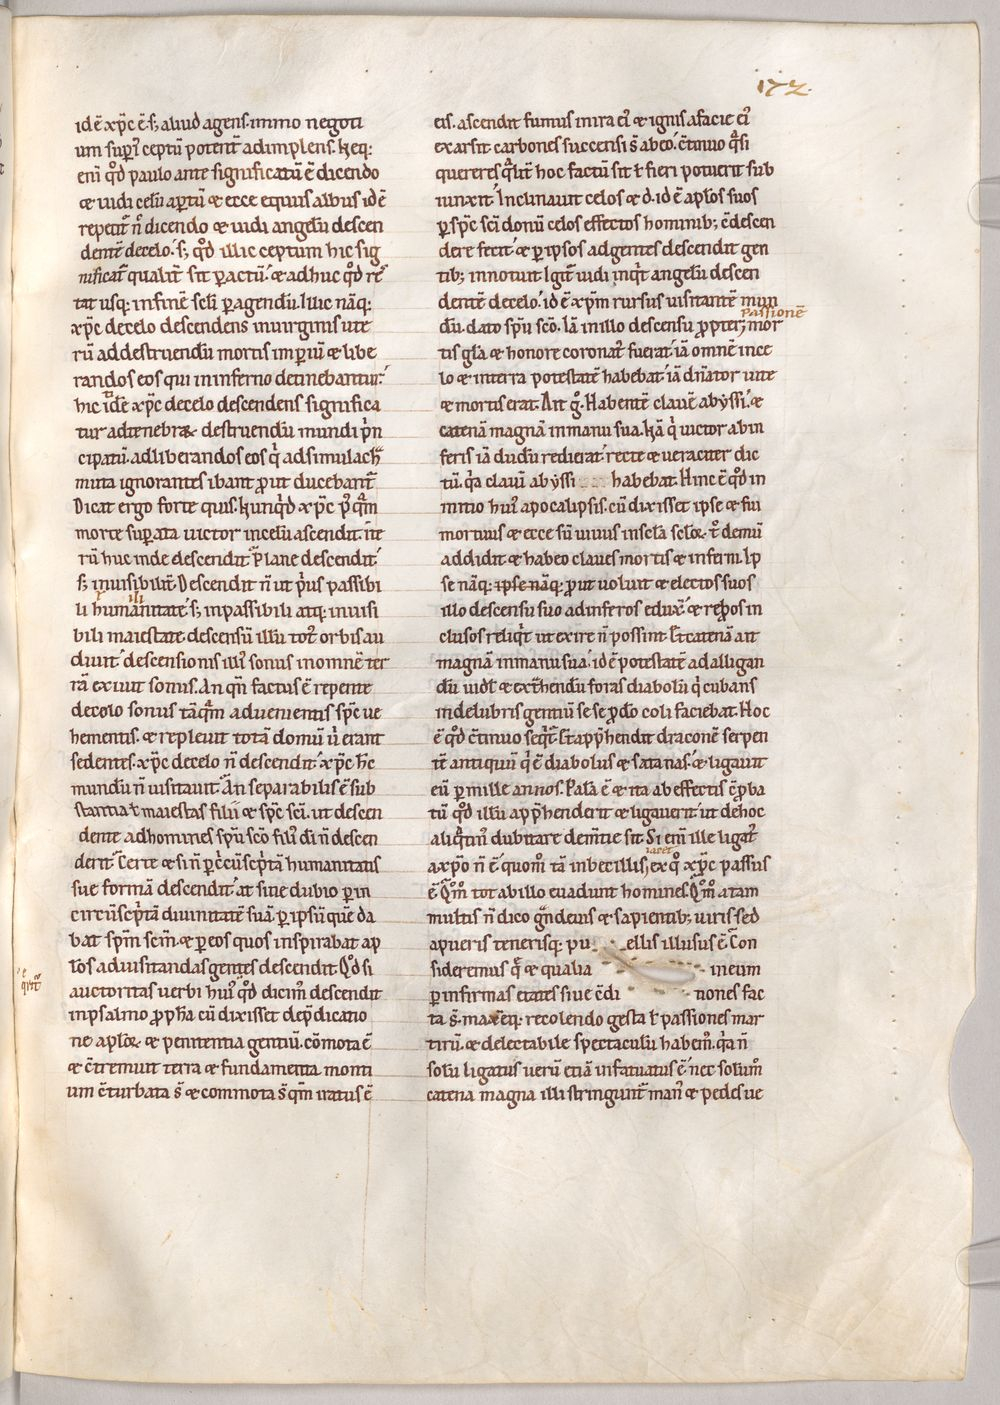 172.
id ē xp̄c ē. s; aliud agens. immo negoti
um suꝑi᷒ ceptū potent̄ adimplens. Neq;
eni᷒ qd̄ paulo ante significatū ē dicendo
& uidi celū aꝑtū & ecce equus albus id ē
repetit᷒ n̄ dicendo & uidi angelū descen
dentē de celo. s; qd̄ illic ceptum hic sig
nificat᷒ qualit̄ sit ꝑactū. & adhuc qd̄ re
tat usq; in finē scli ꝑagendū. Illic nāq;
xp̄c de celo descendens in uirginis ute
rū ad destruendū mortis imꝑiū & libe
randos eos qui in inferno detinebantur.
hic idē xp̄c de celo descendens significa
tur ad tenebraꝝ destruendū mundi p̄n
cipatū. ad liberandos eos q̄ ad simulach᷒
muta ignorantes ibant prout ducebant᷒
Dicat ergo forte quis. Nunq̄d xp̄c p᷒ q̄m
morte suꝑata uictor in celū ascendit. ite
rū huc inde descendit? Plane descendit.
s; inuisibilit̄. Descendit n̄ ut p̄us passibi
li humanitate. s; inpassibili atq; inuisi
bili maiestate. descensū illū tot᷒ orbis au
diuit. descensionis illi᷒ sonus in omnē ter
rā exiuit sonus. An qn̄ factus ē repente
de celo sonus tāq̄m aduenientis sp̄c ue
hementis. & repleuit totā domū u᷒ erant
sedentes. xp̄c de celo n̄ descendit. xp̄c h̄c
mundū n̄ uisitauit? An separabilis ē sub
stantia ł maiestas filii & sp̄c sc̄i. ut descen
dente ad homines sp̄u sc̄o fili᷒ di᷒ n̄ descen
derit? Certe & si n̄ ꝑ c̄cūsc̄ptā humanitatis
sue formā descendit. at sine dubio ꝑ in
circūsc̄ptā diuinitatē suā. ꝑ ipsū quē da
bat sp̄m sc̄m. & ꝑ eos quos inspirabat ap
l̄os ad uisitandas gentes descendit. Qd̄ si
auctoritas uerbi hui᷒ qd̄ dicim᷒ descendit
in psalmo propħa cū dixisset de p̄dicatio
ne apl̄oꝝ & penitentia gentiū. cōmota ē
& c̄tremuit terra & fundamenta monti
um c̄turbata s̄ & commota s̄ qm̄ iratus ē
eis. ascendit fumus in ira ei᷒ & ignis a facie ei᷒
exarsit carbones succensi s̄ ab eo. c̄tinuo q̄si
quereres q̄lit̄ hoc factū sit ł fieri potuerit sub
iunxit. Inclinauit celos & d̄. id ē apl̄os suos
ꝑ sp̄c sc̄i donū celos effectos hominib; c̄descen
dere fecit. & ꝑ ipsos ad gentes descendit gen
tib; innotuit. Igit᷒ uidi inq̄t angelū descen
dentē de celo. id ē xp̄m rursus uisitantē mun
passionē
dū. dato sp̄u sc̄o. Iā in illo descensu propter; mor
tis gl̄a & honore coronat᷒ fuerat. iā omnē in ce
lo & in terra potestatē habebat. iā dn̄ator uite
& mortis erat. Ait g᷒. Habentē clauē abyssi. &
catenā magnā in manu sua. Nā q̄ uictor ab in
feris iā dudū redierat. recte & ueraciter dic
tū. q̄a clauū abyssi habebat. Hinc ē qd̄ in
initio hui᷒ apocalipsis. cū dixisset ipse & fui
mortuus & ecce sū uiuus in scl̄a scl̄oꝝ. t̄ demū
addidit & habeo claues mortis & inferni. Ip
se nāq; ipse nāq; prout uoluit & electos suos
illo descensu suo ad inferos eduxit. & repos in
clusos reliq̄t ut exire n̄ possint. Et catenā ait
magnā in manu sua. id ē potestatē ad alligan
dū uidl̄ & ext̄hendū foras diabolū q̄ cubans
in delubris gentiū se se pro do coli faciebat. Hoc
ē qd̄ c̄tinuo seq̄t᷒. Et app̄hendit draconē serpen
tē antiquū q̄ ē diabolus & satanas. & ligauit
eū ꝑ mille annos. Palā ē & ita ab effectis c̄proba
tū qd̄ illū app̄henderit & ligauerit. ut de hoc
aliq̄tin᷒ dubitare dem̄tie sit. Si eni᷒ ille ligat᷒
iacet
a xpō n̄ ē. quom᷒ tā inbecillis; ex q᷒ xp̄c passus
ē? Qm᷒ tot ab illo euadunt homines? Qm᷒ a tam
multis n̄ dico grandeuis & sapientib; uiris sed
a pueris tenerisq; pu ellis illusus ē? Con
sideremus q̄ & qualia in eum
ꝑ infirmas etates siue c̄di tiones fac
ta s̄. maxēq; recolendo gesta ł passiones mar
tirū. & delectabile spectaculū habem᷒. q̄a n̄
solū ligatus uerū etiā infatuatus ē. nec solum᷒
catena magna illi stringunt᷒ man᷒ & pedes ue